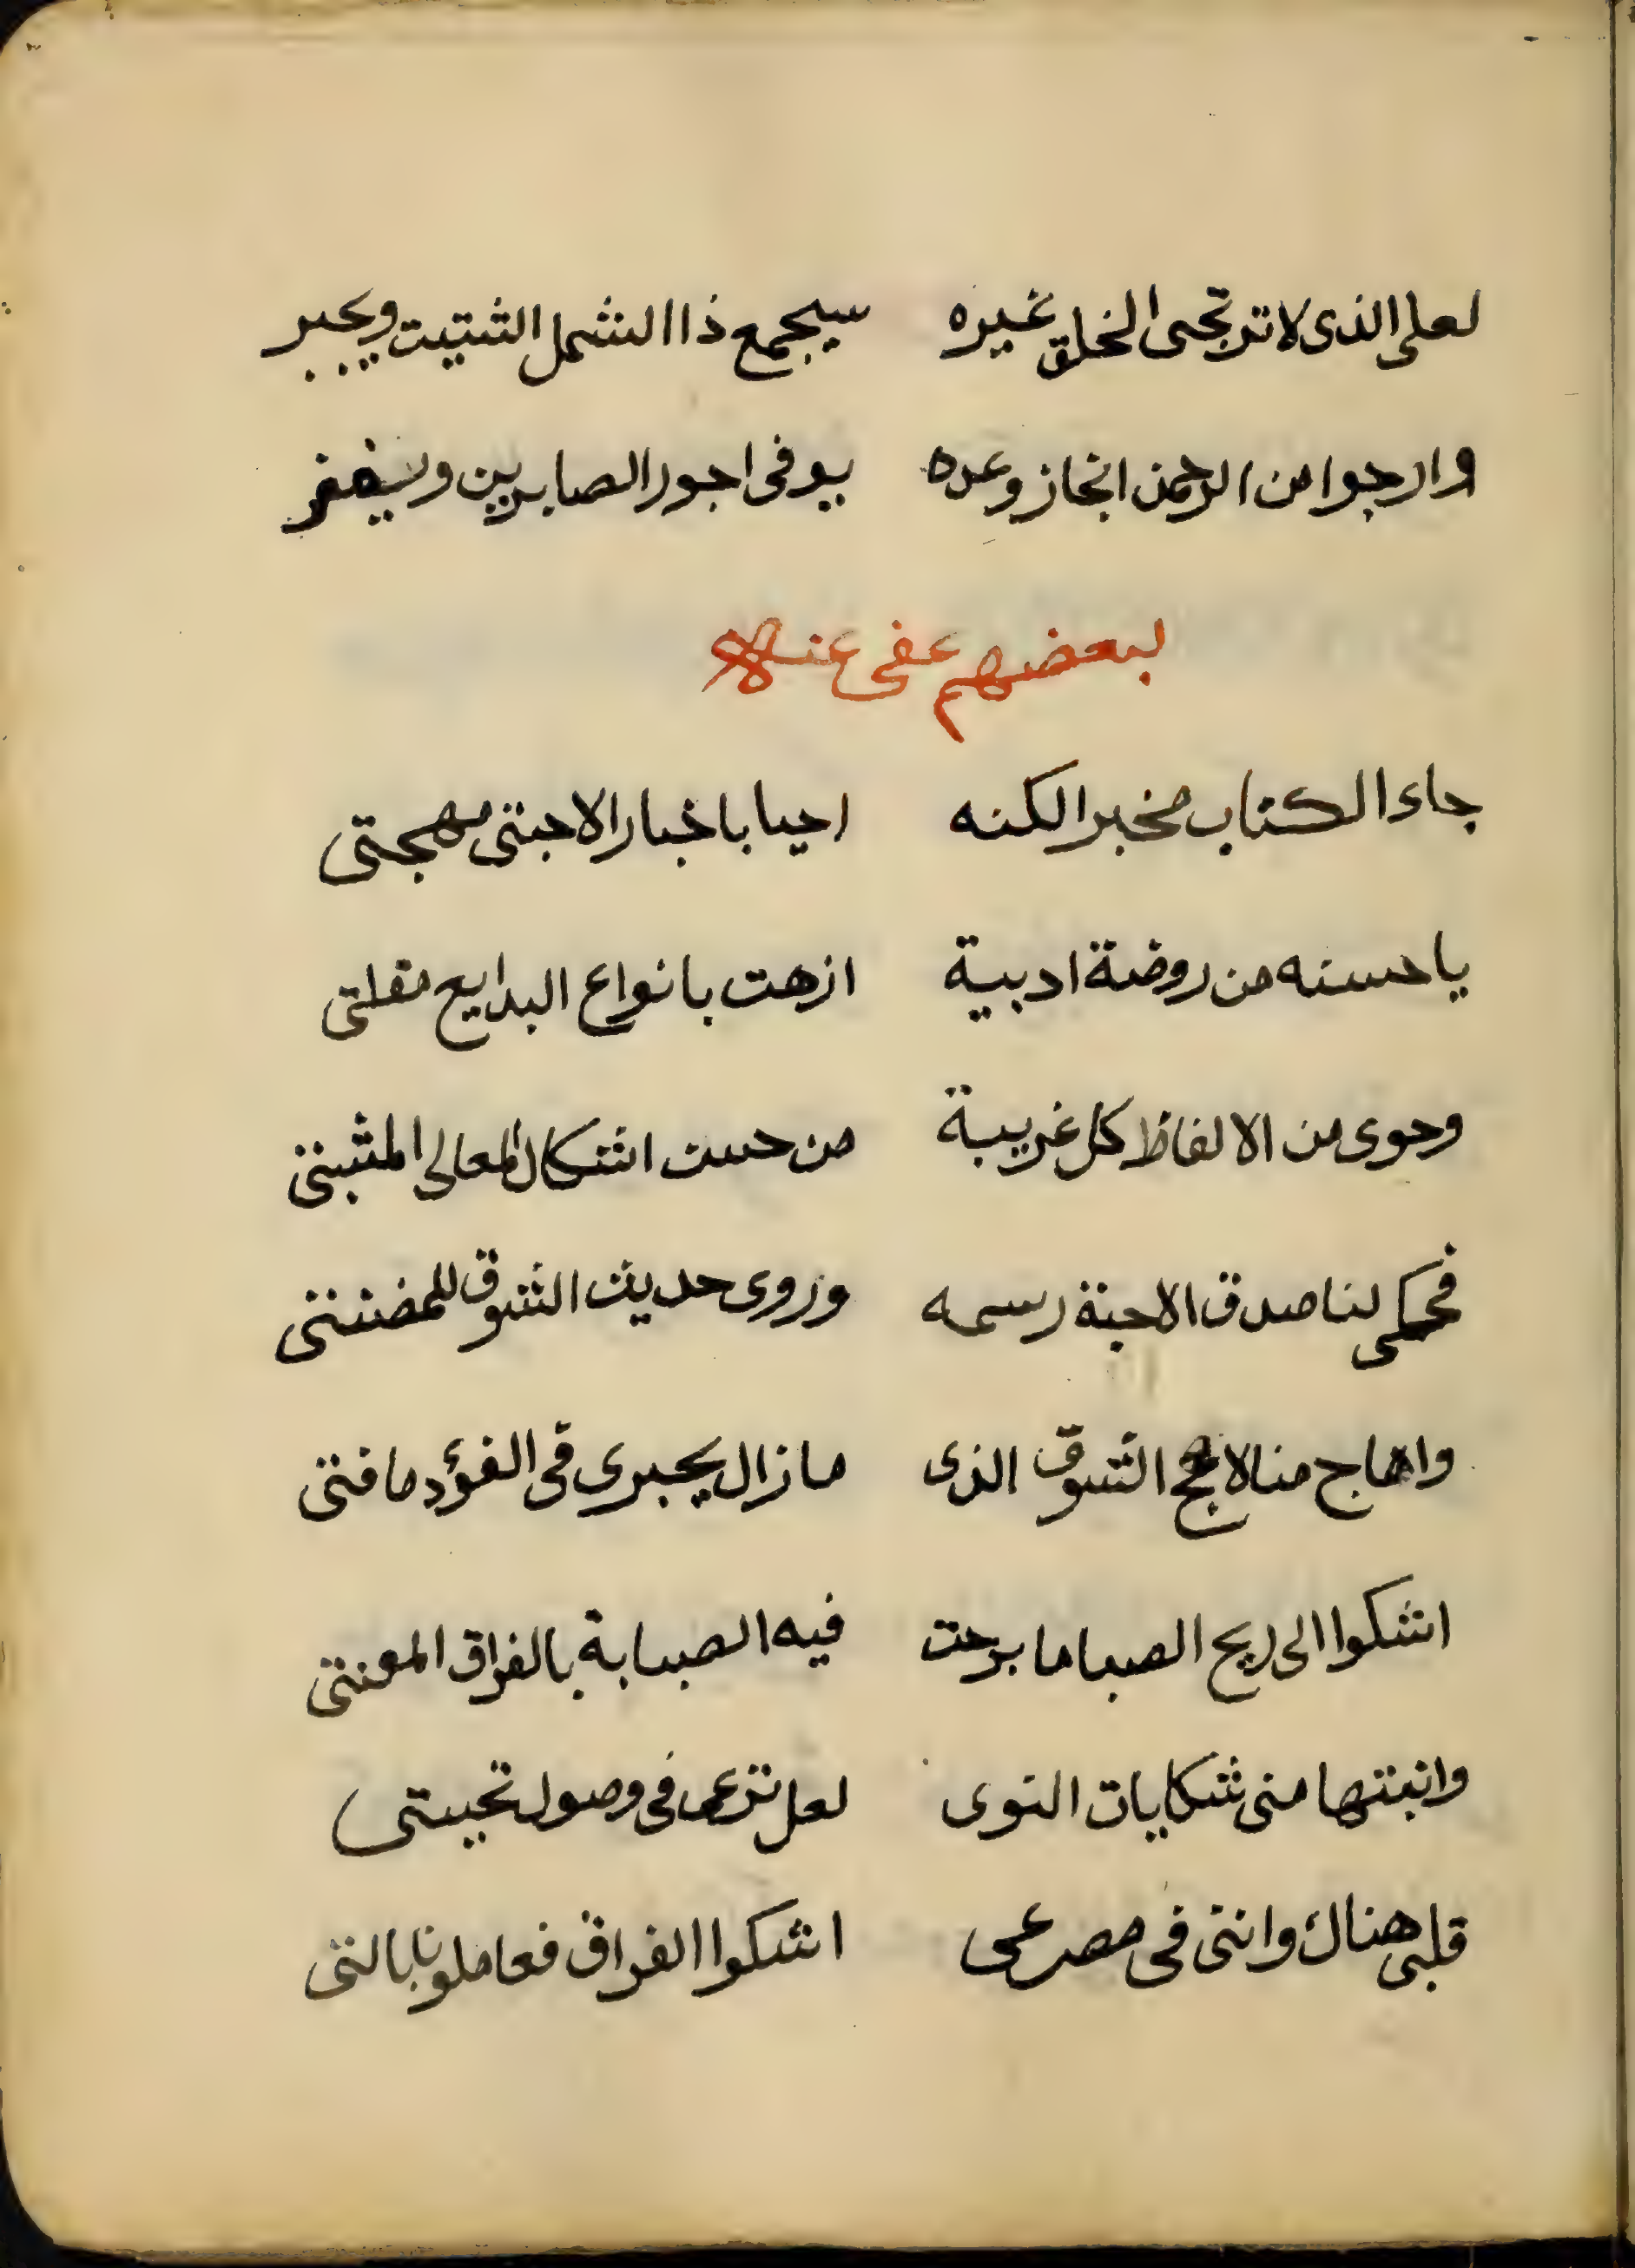 لعلى الذى لا ترتجى الخلق غيره سيجمع ذا الشمل الشتيت ويجبر
وارجوا من الرحمن انجاز وعده يوفى اجور الصابرين ويغفر
لبعضهم عفى عنه
جاء الكتاب مخبرا لكنه احيا باخبار الاحبتى مهجتى
يا حسنه من روضة ادبية ازهت بانواع البدايع مقلتى
وحوى من الالفاظ كل غريبة من حسن اشكال المعالى المثبتى
فحكى لنا صدق الاحبة رسمه وروى حديث الشوق للمضنتى
واهاج منا لاعج الشوق الذى ما زال يجرى فى الفؤد ما فتى
اشكوا الى ريح الصبا ما برحت فيه الصبابة بالفراق المعنتى
وابثتها منى شكايات النوى لعل ترعى فى وصول تحيتى
قلبى هناك واننى فى مصر عى اشكوا الفراق فعاملونا بالتى